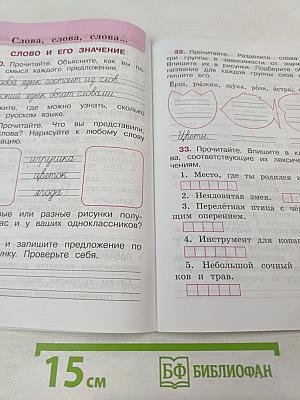 Слова, слова, слова...
СЛОВО И ЕГО ЗНАЧЕНИЕ
Прочитайте. Объясните, как вы по-
смысл каждого предложения.
язык состоит из слов.
язык богат словами.
жите, где можно узнать, сколько
русском языке.
Прочитайте. Что вы представили,
слова? Нарисуйте к любому слову
игрушка
цветок
ягода
вые или разные рисунки полу-
вас и у ваших одноклассников?
и запишите предложение по
унку. Проверьте себя.
32. Прочитайте. Разделите слова
три группы в зависимости от значен
впишите их в рисунки. Подберите о
название для каждой группы слов
пишите его.
Ерш, рыжик, щука, роза, астра,
Цветы
33. Прочитайте. Впишите в клеточ
ва, соответствующие их лексическ
чениям.
1. Место, где ты родился и
2. Неядовитая змея.
3. Перелётная птица с чёр
щим оперением.
4. Инструмент для копан
5. Небольшой сочный
ков и трав.
15 см
БФ БИБЛИОФАН